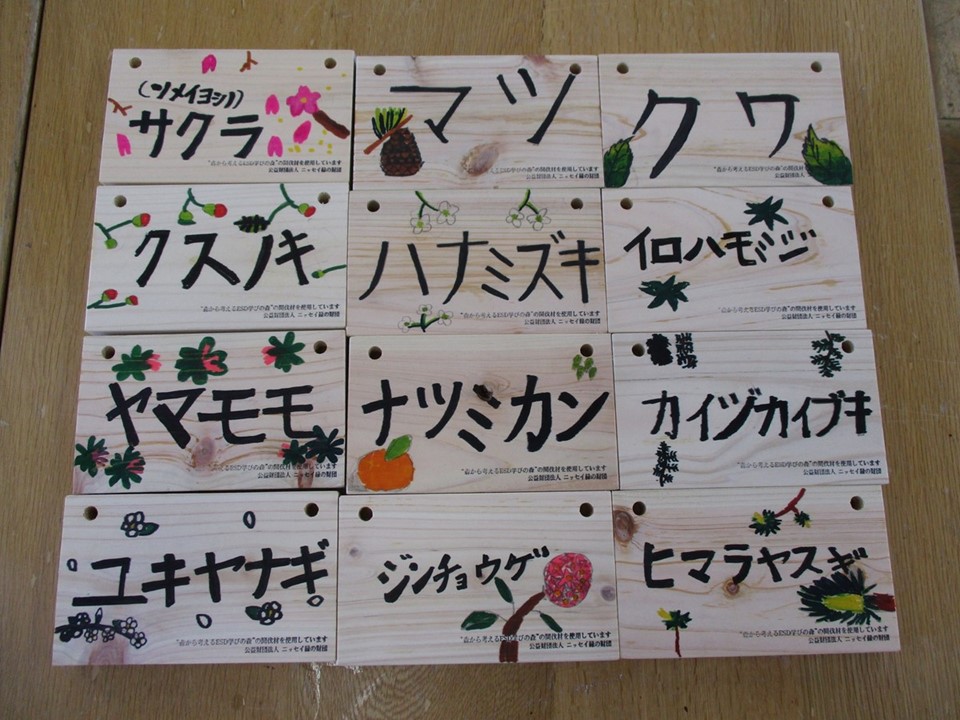 (ソメイヨシノ)
サクラ
"森から考えるESD学びの森"の間伐材を使用しています
公益財団法人 ニッセイ緑の財団
マツ
しています
公益財団法人 ニッセイ緑の財団
クワ
"森から考えるESD学びの森"の間伐材を使用しています
公益財団法人 ニッセイ緑の財団
クスノキ
"森から考えるESD学びの森"の間伐材を使用しています
公益財団法人 ニッセイ緑の財団
ハナミズキ
"森から考えるESD学びの森"の間伐材を使用しています
公益財団法人 ニッセイ緑の財団
イロハモミジ
"森から考えるESD学びの森"の間伐材を使用しています
公益財団法人 ニッセイ緑の財団
ヤマモモ
"森から考えるESD学びの森"の間伐材を使用しています
公益財団法人 ニッセイ緑の財団
ナツミカン
"森から考えるESD学びの森"の間伐材を使用しています
公益財団法人 ニッセイ緑の財団
カイヅカイブキ
"森から考えるESD学びの森"の間伐材を使用しています
公益財団法人 ニッセイ緑の財団
ユキヤナギ
"森から考えるESD学びの森"の間伐材を使用しています
公益財団法人 ニッセイ緑の財団
ジンチョウゲ
"森から考えるESD学びの森"の間伐材を使用しています
公益財団法人 ニッセイ緑の財団
ヒマラヤスギ
"森から考えるESD学びの森"の間伐材を使用しています
公益財団法人 ニッセイ緑の財団